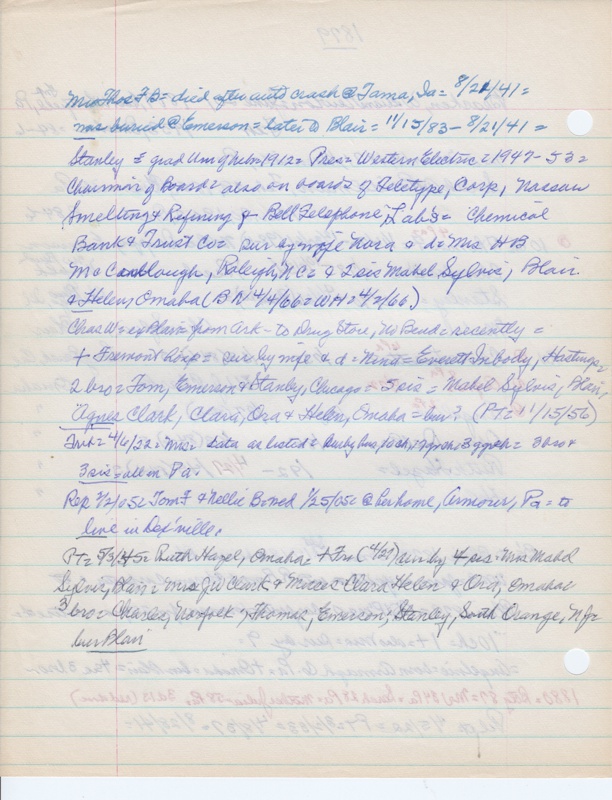 Mrs Thos F B = died after auto crash @ Tama, Ia = 8/21/41 =
mrs buried @ Emerson = Later to Blair = 11/15/83 - 8/21/41 =
Stanley = grad Univ of Nebr 1912 = Pres = Western Electric = 1947-53 =
Chairmn of Board = also on boards of Teletype, Corp, Nassau
Smelting & Refining & Bell Telephone, Labs = Chemical
Bank & Trust Co = sur by wife Nora & d = Mrs HB
McCoullough, Raleigh, NC = & 2 sis Mabel Sylvis, Blair
& Helen, Omaha (BN 4/4/66 = WH = 4/2/66)
Chas W = ex Blair from Ark - to Drug Store, No Bend = recently =
+ Fremont Hosp = sur by wife & d = Nina = Everett Inbody, Hastings =
2 bro = Tom, Emerson & Stanley, Chicago = 5 sis = Mabel Sylvis, Blair,
Agnes Clark, Clara, Ora & Helen, Omaha = bur? (PT = 11/15/56)
Trib = 4/6/22 = Mrs = data as listed =
3 sis = all in Pa.
Rep 2/2/05 = Tom F & Nellie Bowed 1/25/05 = @ her home, Armour, Pa = to
live in Dex'ville.
PT = 5/3/45 = Ruth Hazel, Omaha = + Fri (4/27) sur by 4 sis = Mrs Mabel
Sylvis, Blair = Mrs JW Clark & Misses Clara Helen & Ora, Omaha =
3 bro = Charles, Norfolk, Thomas, Emerson; Stanley, South Orange, NJ =
bur Blair